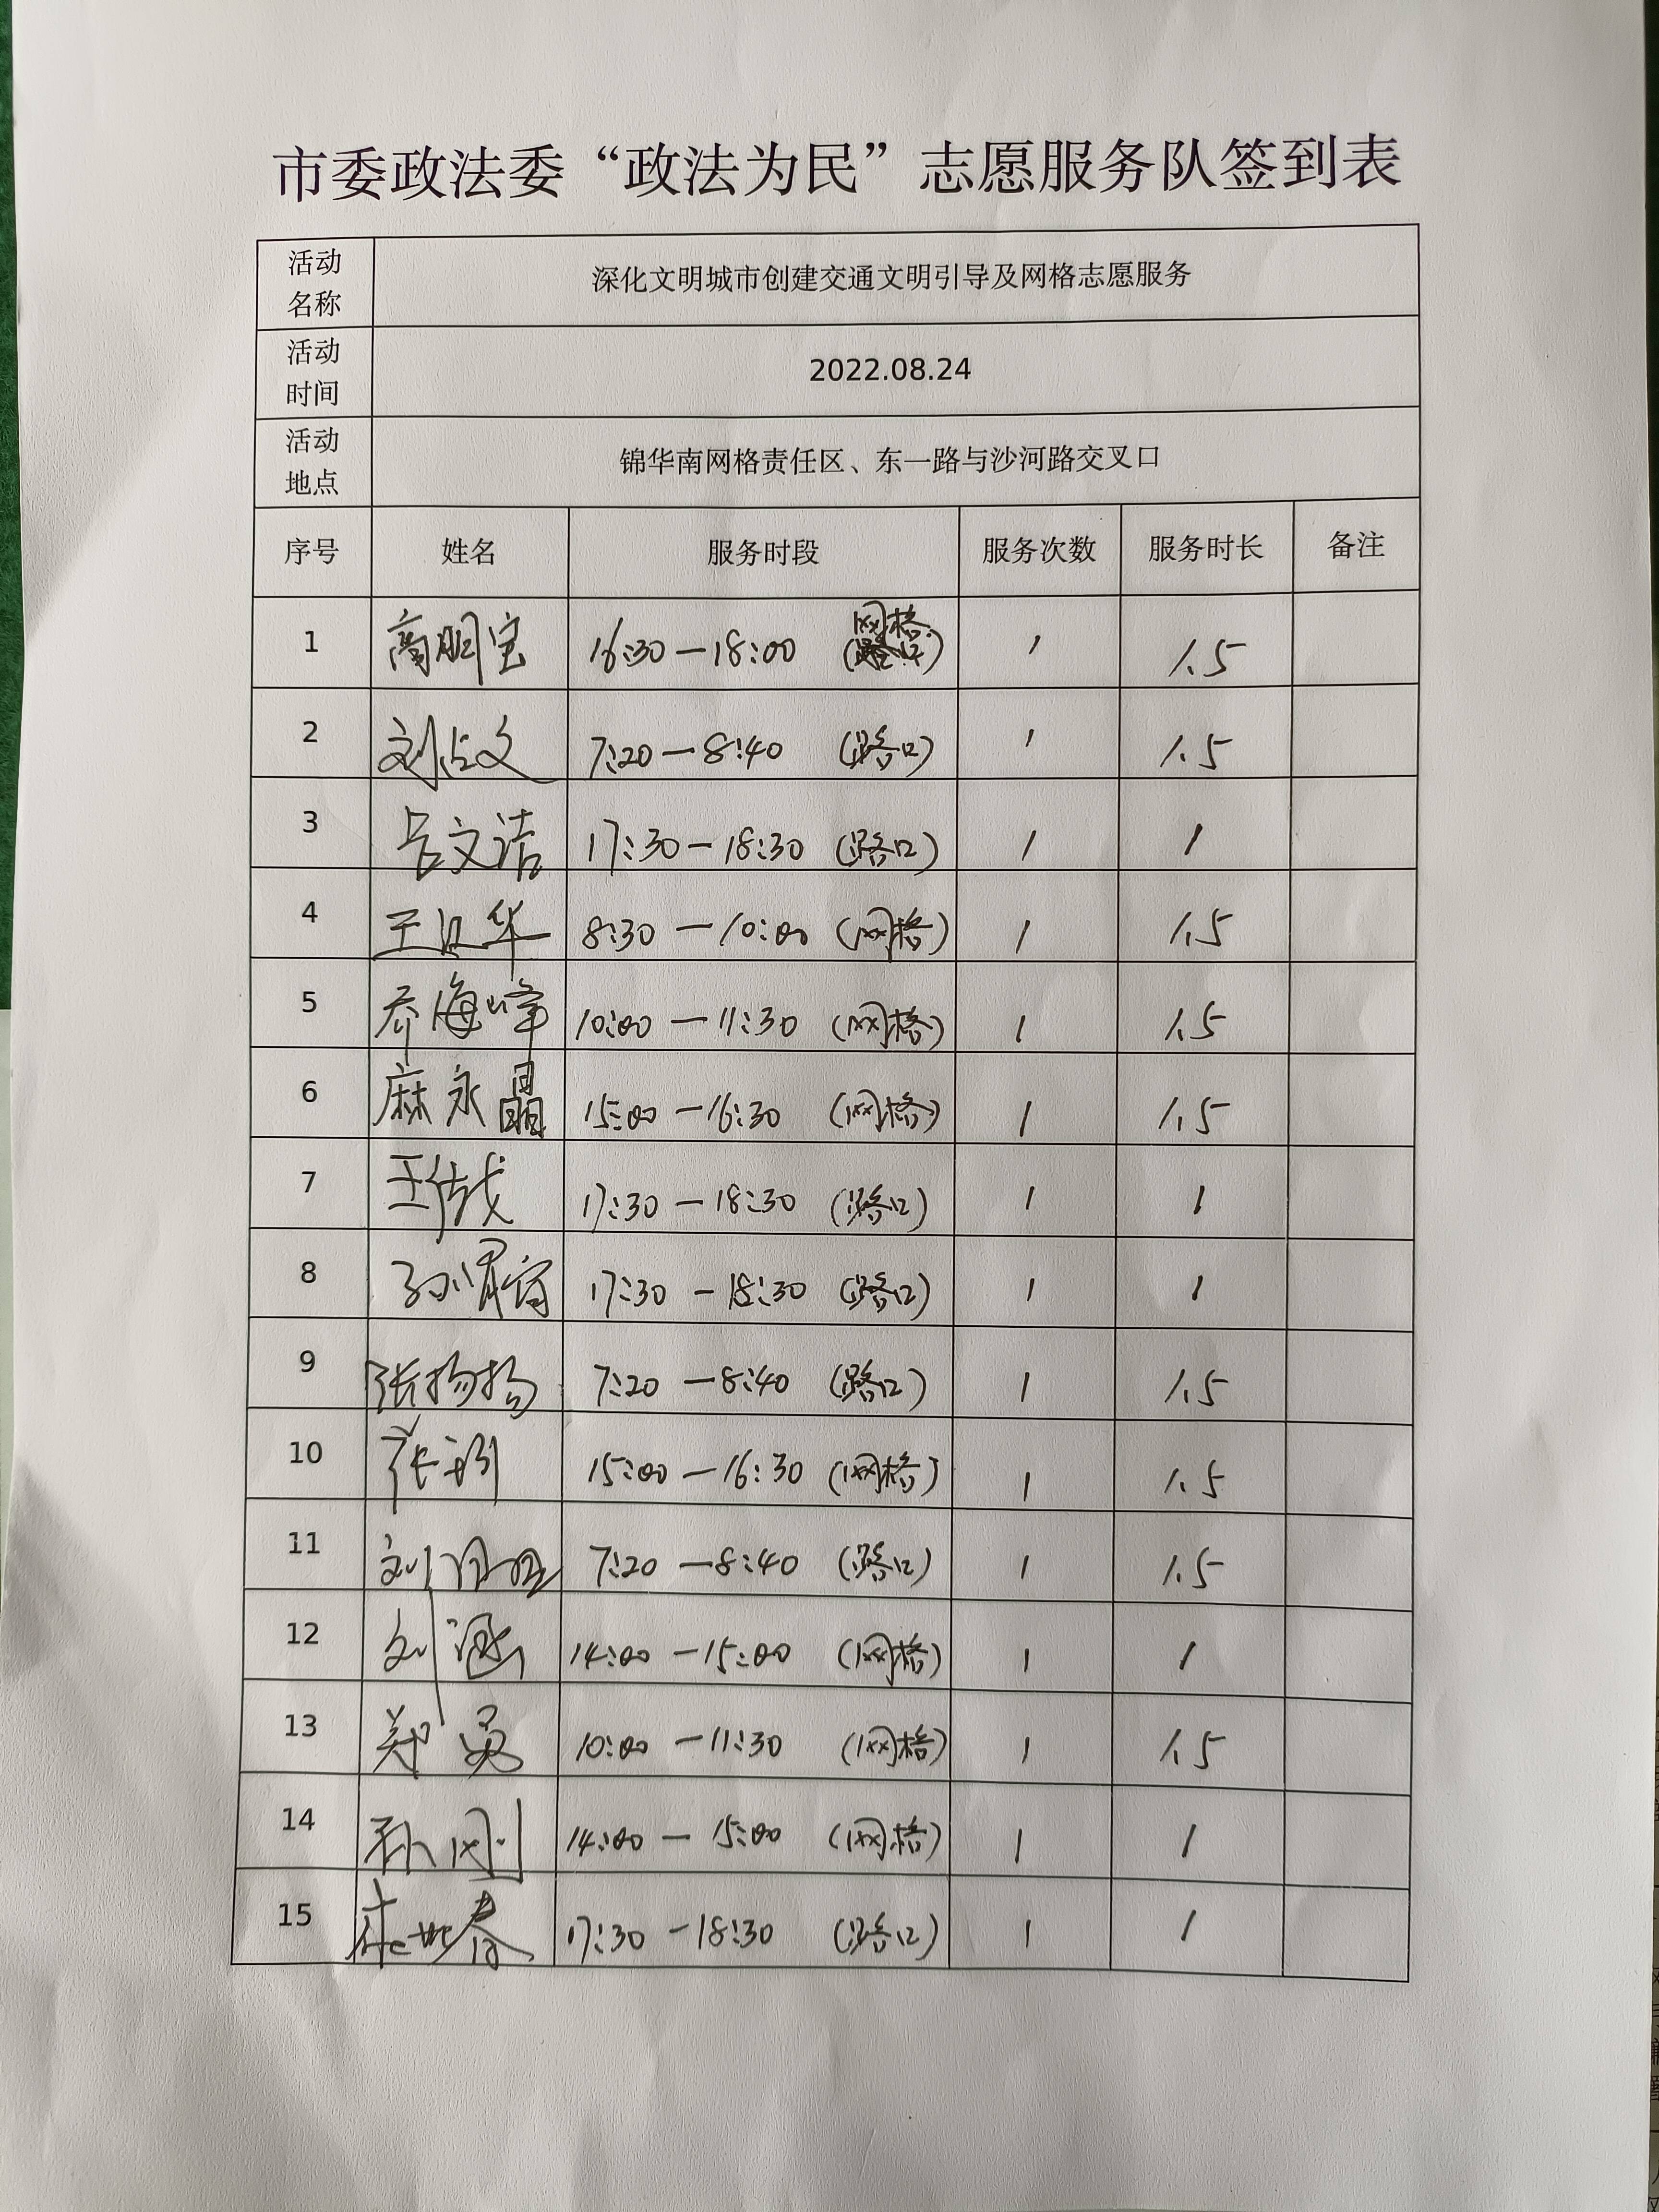 市委政法委“政法为民”志愿服务队签到表
活动名称 深化文明城市创建交通文明引导及网格志愿服务
活动时间 2022.08.24
活动地点 锦华南网格责任区、东一路与沙河路交叉口
序号 姓名 服务时段 服务次数 服务时长 备注
1 高明宝 16:30—18:00 (网格) 1 1.5
2 刘占文 7:20—8:40 (路口) 1 1.5
3 吕文洁 17:30—18:30 (路口) 1 1
4 8:30—10:00 (网格) 1 1.5
5 乔海峰 10:00—11:30 (网格) 1 1.5
6 麻永晶 15:00—16:30 (网格) 1 1.5
7 17:30—18:30 (路口) 1 1
8 17:30—18:30 (路口) 1 1
9 张扬扬 7:20—8:40 (路口) 1 1.5
10 15:00—16:30 (网格) 1 1.5
11 7:20—8:40 (路口) 1 1.5
12 刘涵 14:00—15:00 (网格) 1 1
13 10:00—11:30 (网格) 1 1.5
14 孙刚 14:00—15:00 (网格) 1 1
15 17:30—18:30 (路口) 1 1